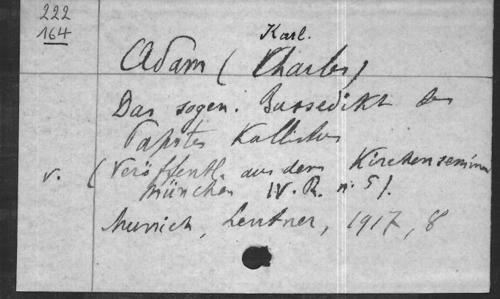 222
164
Karl.
Adam (Charles)
Das sogen. Bussedikt des
Papstes Kallistus
v. (Veröffentl. aus dem Kirchenseminar
München IV. R. n. 5).
Munich, Lentner, 1917, 8